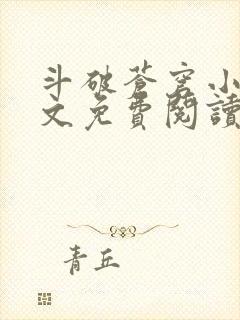 斗破苍穹小
文免費閱讀
青丘